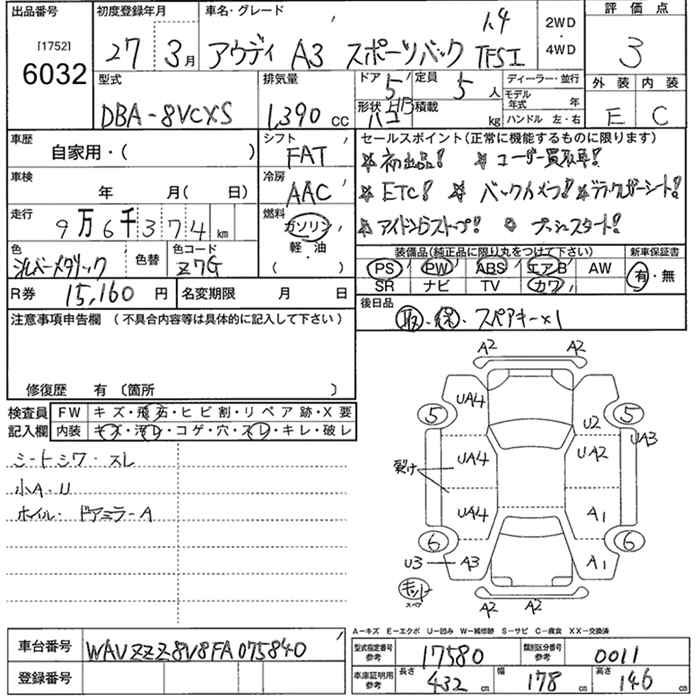 出品番号 初度登録年月 車名・グレード 1.4 2WD・4WD 評価点
[1752] 6032 27 3月 アウディ A3 スポーツバック TFSI 3
型式 排気量 ドア 5 定員 5人 ディーラー・並行 外装 内装
DBA-8VCXS 1,390 cc 形状 積載 kg モデル年式 年 ハンドル 左・右 E C
車歴 自家用・( ) シフト FAT セールスポイント(正常に機能するものに限ります)
初出品! ユーザー買取車!
車検 年 月( 日) 冷房 AAC ETC! バックカメラ!
走行 9万6千374km 燃料 ガソリン 軽・油 ( ) アイドリングストップ! プッシュスタート!
色 シルバーメタリック 色替 色コード Z7G 装備品(純正品に限り丸をつけて下さい) 新車保証書
PS PW ABS エアB AW 有・無
SR ナビ TV カワ
R券 15,160円 名変期限 月 日 後日品
注意事項申告欄(不具合内容等は具体的に記入して下さい) 取・保・スペアキー×1
修復歴 有(箇所 )
検査員 FW キズ・飛石・ヒビ割・リペア跡・X要
記入欄 内装 キズ・汚レ・コゲ・穴・スレ・キレ・破レ
シートシワ・スレ
小A・U
ホイル・ドアミラーA
A2 A2
UA4
5 U2 5
UA3
UA4 UA2
裂け
UA4 A1
6 6
U3 A3 A1
キット
スペア
A2 A2
A－キズ E－エクボ U－凹み W－補修跡 S－サビ C－腐食 XX－交換済
車台番号 WAVZZZ8V8FA075840 型式指定番号 参考 17580 類別区分番号 参考 0011
登録番号 車庫証明用 参考 長さ 432cm 幅 178cm 高さ 146cm